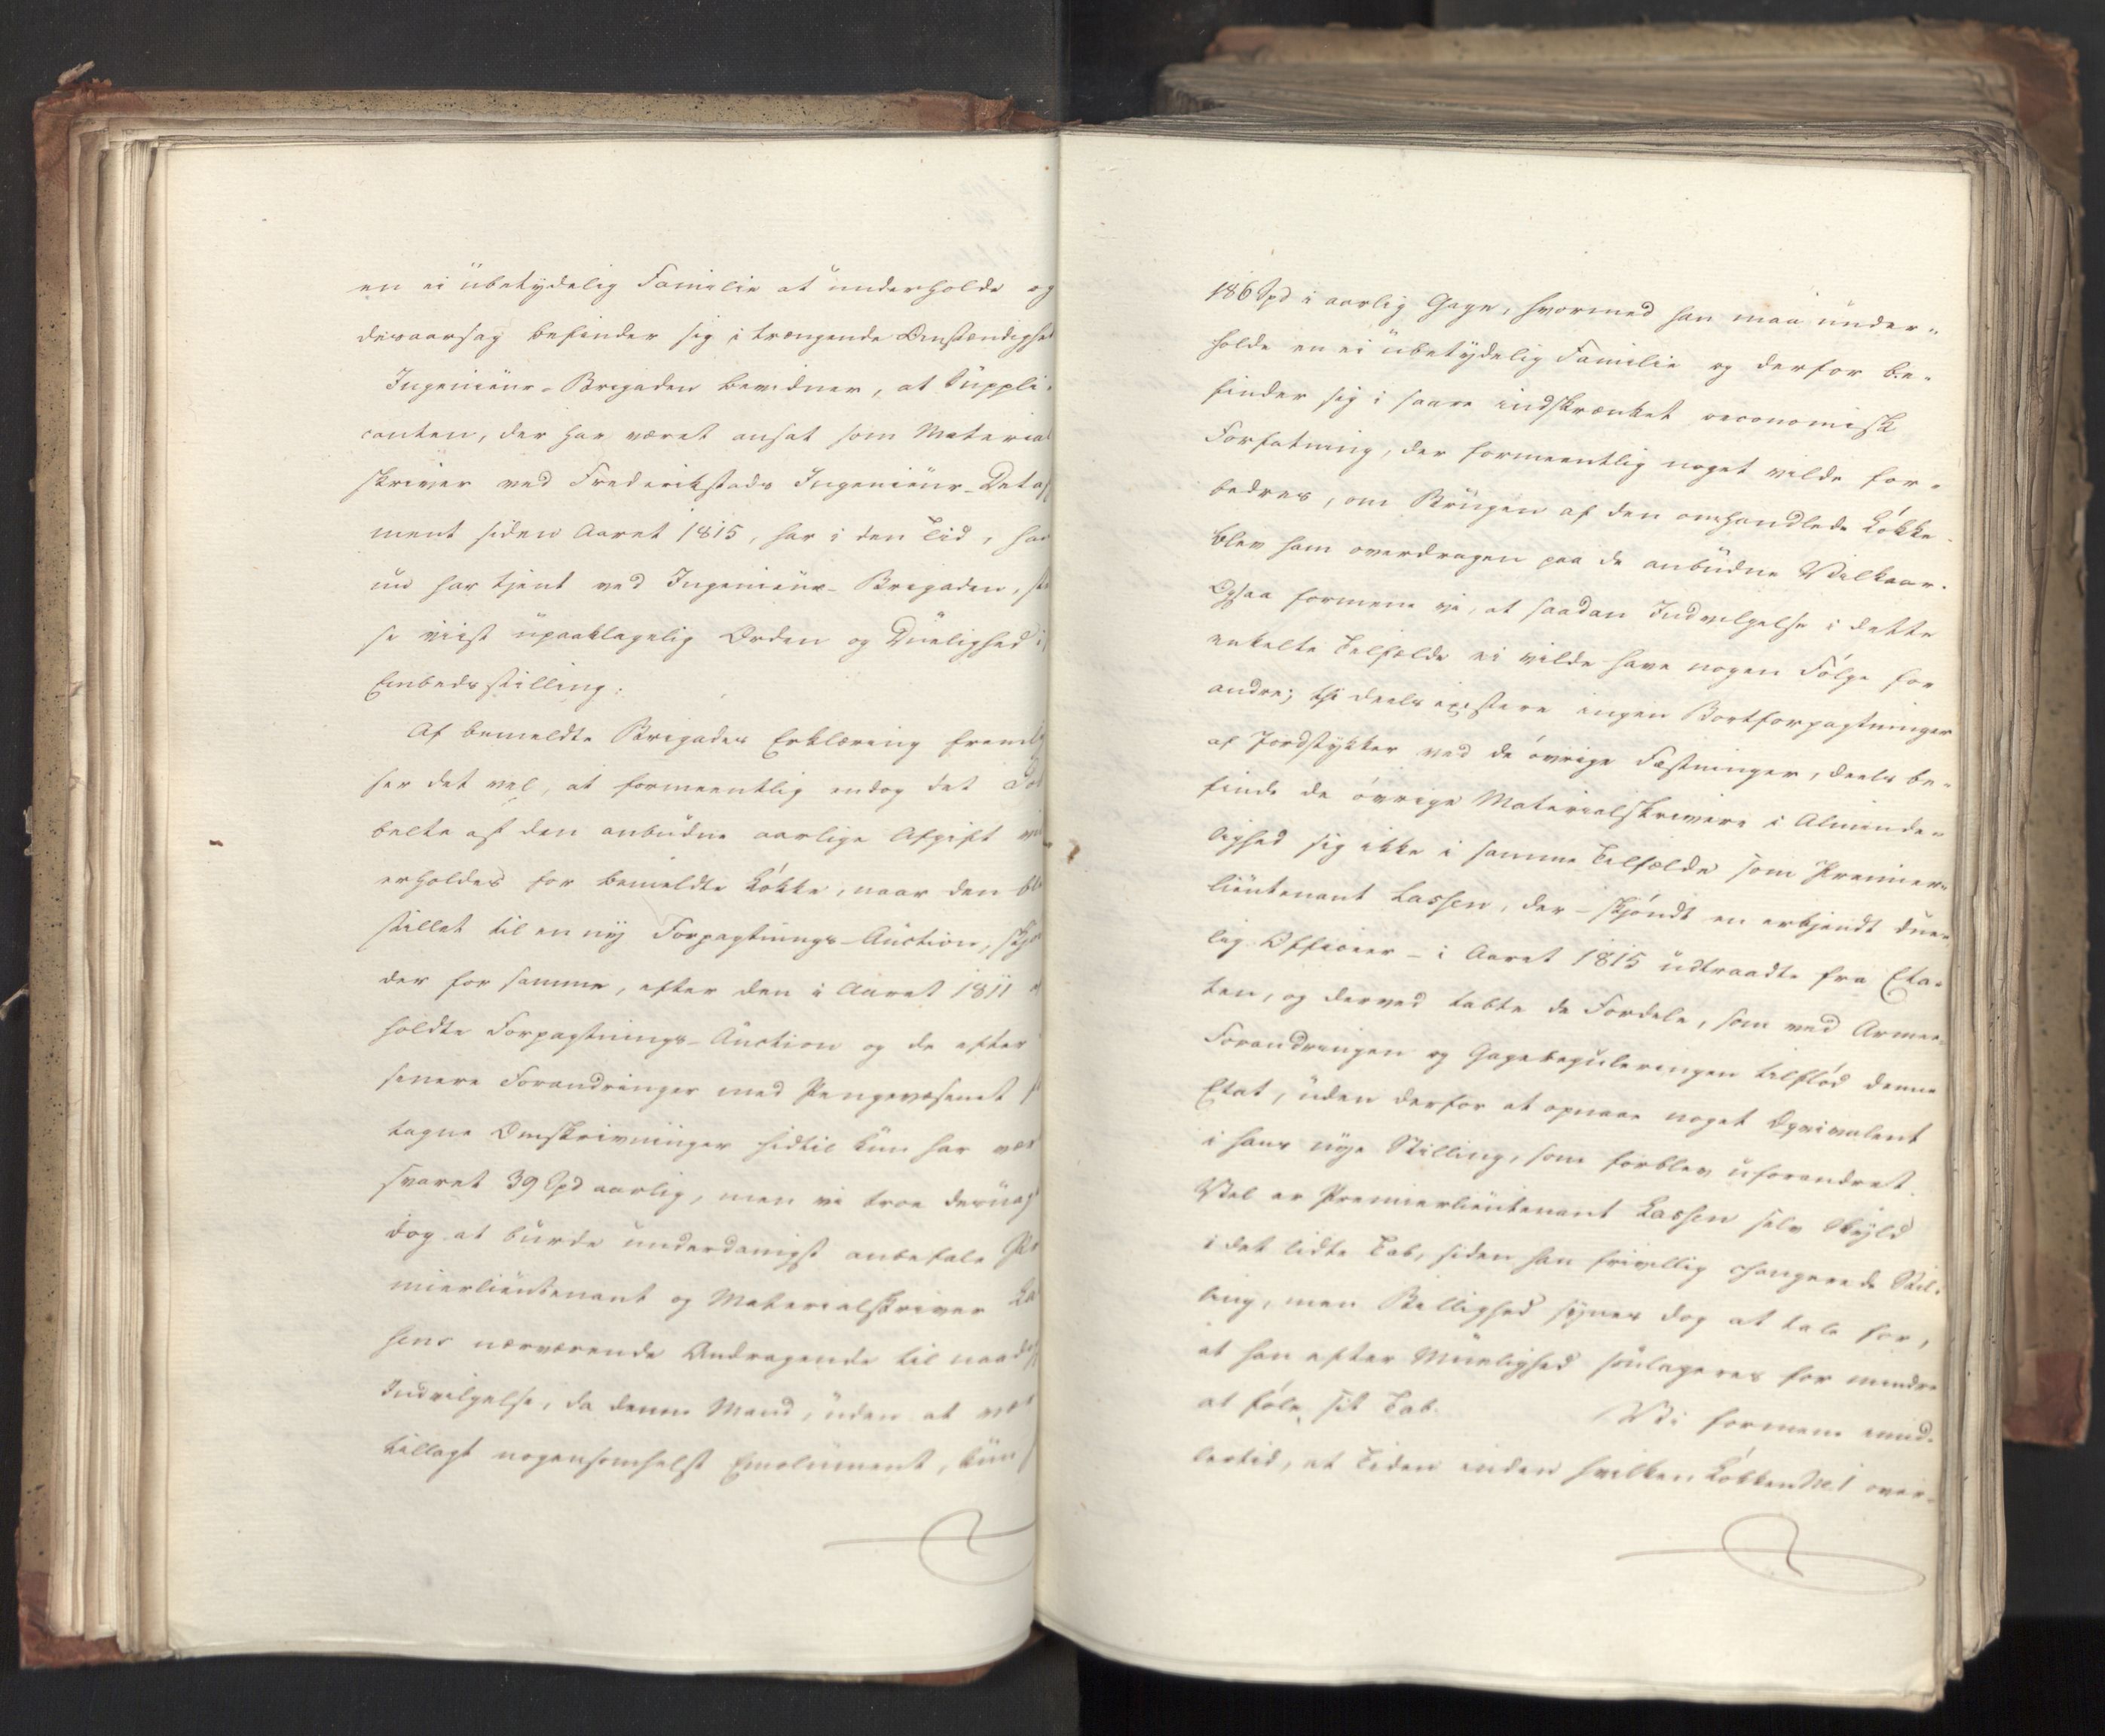 en ei übetydelig Familie at underholde og
desaarsag befinder sig i trængende Omstændighed
Ingenieur-Brigaden bevidner, at Suppli-
canten, der har været ansat som Material
skriver ved Frederikstads Ingenieur-Detas
ment siden Aaret 1815, har i den Tid, han
nu har tjent ved Ingenieur-Brigaden, ste
se viist upaaklagelig Orden og Duelighed i
Embedsstilling.
Af bemeldte Brigades Erklæring fremly
ser det vel, at formeentlig endog det Dob
belte af den anbudne aarlige Afgift vil
erholdes for bemeldte Løkke, naar den blev
stillet til en ny Forpagtnings-Auction, skjøn
der for samme, efter den i Aaret 1811 af
holdte Forpagtnings-Auction og de efter
senere Forandringer med Pengevæsenet fo
tagne Omskrivninger hidtil kun har vær
svaret 39 Spd aarlig, men vi troe desuagt
dog at burde underdanigst anbefale Pr
mierlieutenant og Materialskriver Las
sens nærværende Andragende til naadig
Indvilgelse, da denne Mand, uden at vær
tillagt nogensomhelst Emolument, kun h
186 Spd i aarlig Gage, hvormed han maa under-
holde en ei übetydelig Familie og derfor be-
finder sig i saare indskrænket oeconomisk
Forfatning, der formeentlig noget vilde for-
bedres, om Brugen af den omhandlede Løkke
blev ham overdragen paa de anbudne Vilkaar.
Ogsaa formene vi, at saadan Indvilgelse i dette
enkelte Tilfælde ei vilde have nogen Følge for
andre; thi deels existere ingen Bortforpagtninger
af Jordstykker ved de øvrige Fæstninger, deels be-
finde de øvrige Materialskrivere i Alminde-
lighed sig ikke i samme Tilfælde som Premier-
lieutenant Lassen, der - skjøndt en erkjendt due-
lig Officier - i Aaret 1815 udtraadte fra Eta-
ten, og derved tabte de Fordele, som ved Armee-
Forandringen og Gagereguleringen tilflød denne
Etat, uden derfor at opnaae noget Æqvivalent
i hans nye Stilling, som forblev uforandret.
Vel er Premierlieutenant Lassen selv Skyld
i det lidte Tab, siden han frivillig changerede Stil-
ling, men Billighed synes dog at tale for,
at han efter Muelighed soulageres for mindre
at føle sit Tab. Vi formene imid-
lertid, at Tiden inden hvilken Løkken No 1 over-